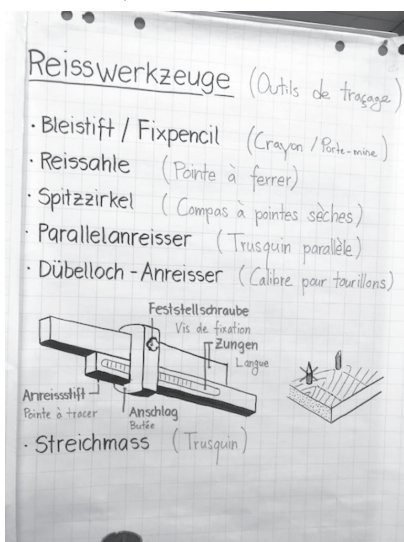 Reisswerkzeuge (Outils de traçage)
· Bleistift / Fixpencil (Crayon / Porte-mine)
· Reissahle (Pointe à ferrer)
· Spitzzirkel (Compas à pointes sèches)
· Parallelanreisser (Trusquin parallèle)
· Dübelloch-Anreisser (Calibre pour tourillons)
Feststellschraube
Vis de fixation
Zungen
Langue
Anreissstift
Pointe à tracer
Anschlag
Butée
· Streichmass (Trusquin)